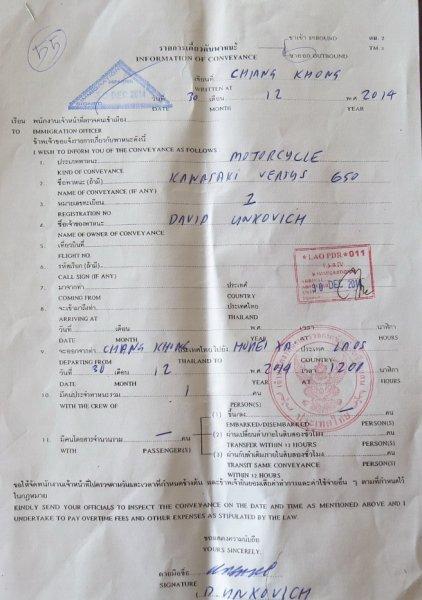 55
ขาเข้า INBOUND ตม. 2
รายการเกี่ยวกับพาหนะ TM. 2
INFORMATION OF CONVEYANCE ขาออก OUTBOUND
เขียนที่ CHIANG KHONG
WRITTEN AT
DEC 2014
วันที่ 30 เดือน 12 พ.ศ. 2014
DATE MONTH YEAR
เรียน พนักงานเจ้าหน้าที่ตรวจคนเข้าเมือง
TO IMMIGRATION OFFICER
ข้าพเจ้าขอแจ้งรายการเกี่ยวกับพาหนะดังนี้
I WISH TO INFORM YOU OF THE CONVEYANCE AS FOLLOWS
1. ประเภทพาหนะ MOTORCYCLE
KIND OF CONVEYANCE
2. ชื่อพาหนะ (ถ้ามี) KAWASAKI VERSYS 650
NAME OF CONVEYANCE (IF ANY)
3. หมายเลขทะเบียน 1
REGISTRATION NO
4. ชื่อเจ้าของพาหนะ DAVID UNKOVICH
NAME OF OWNER OF CONVEYANCE
5. เที่ยวบินที่
FLIGHT NO.
6. รหัสเรียก (ถ้ามี)
CALL SIGN (IF ANY)
* LAO PDR * 011
30 DEC 2014
7. มาจากท่า ประเทศ
COMING FROM COUNTRY
8. จะเข้ามาถึงท่า ประเทศไทย
ARRIVING AT THAILAND
วันที่ เดือน พ.ศ. เวลา นาฬิกา
DATE MONTH YEAR HOURS
9. จะออกจากท่า CHIANG KHONG ประเทศไทยไปยัง HUAI XAI ประเทศ LAOS
DEPARTING FROM THAILAND TO COUNTRY
วันที่ 30 เดือน 12 พ.ศ. 2014 เวลา 1200 นาฬิกา
DATE MONTH YEAR AT HOURS
10. มีคนประจำพาหนะ 1 คน
WITH THE CREW OF PERSON(S)
(1) ขึ้น/ลง — คน
EMBARKED/DISEMBARKED PERSON(S)
11. มีคนโดยสารจำนวนรวม — คน (2) ผ่านเปลี่ยนลำภายในสิบสองชั่วโมง คน
WITH PASSENGER(S) TRANSFER WITHIN 12 HOURS PERSON(S)
(3) ผ่านลำเดิมภายในสิบสองชั่วโมง คน
TRANSIT SAME CONVEYANCE PERSON(S)
WITHIN 12 HOURS
ขอให้จัดพนักงานเจ้าหน้าที่ไปตรวจตามวันและเวลาที่กำหนดข้างต้น และข้าพเจ้ายินยอมเสียค่าทำการและค่าใช้จ่ายอื่น ๆ ตามที่กำหนดไว้
ในกฎหมาย
KINDLY SEND YOUR OFFICIALS TO INSPECT THE CONVEYANCE ON THE DATE AND TIME AS MENTIONED ABOVE AND I
UNDERTAKE TO PAY OVERTIME FEES AND OTHER EXPENSES AS STIPULATED BY THE LAW.
ขอแสดงความนับถือ
YOURS SINCERELY.
ลายมือชื่อ
SIGNATURE
(D. UNKOVICH